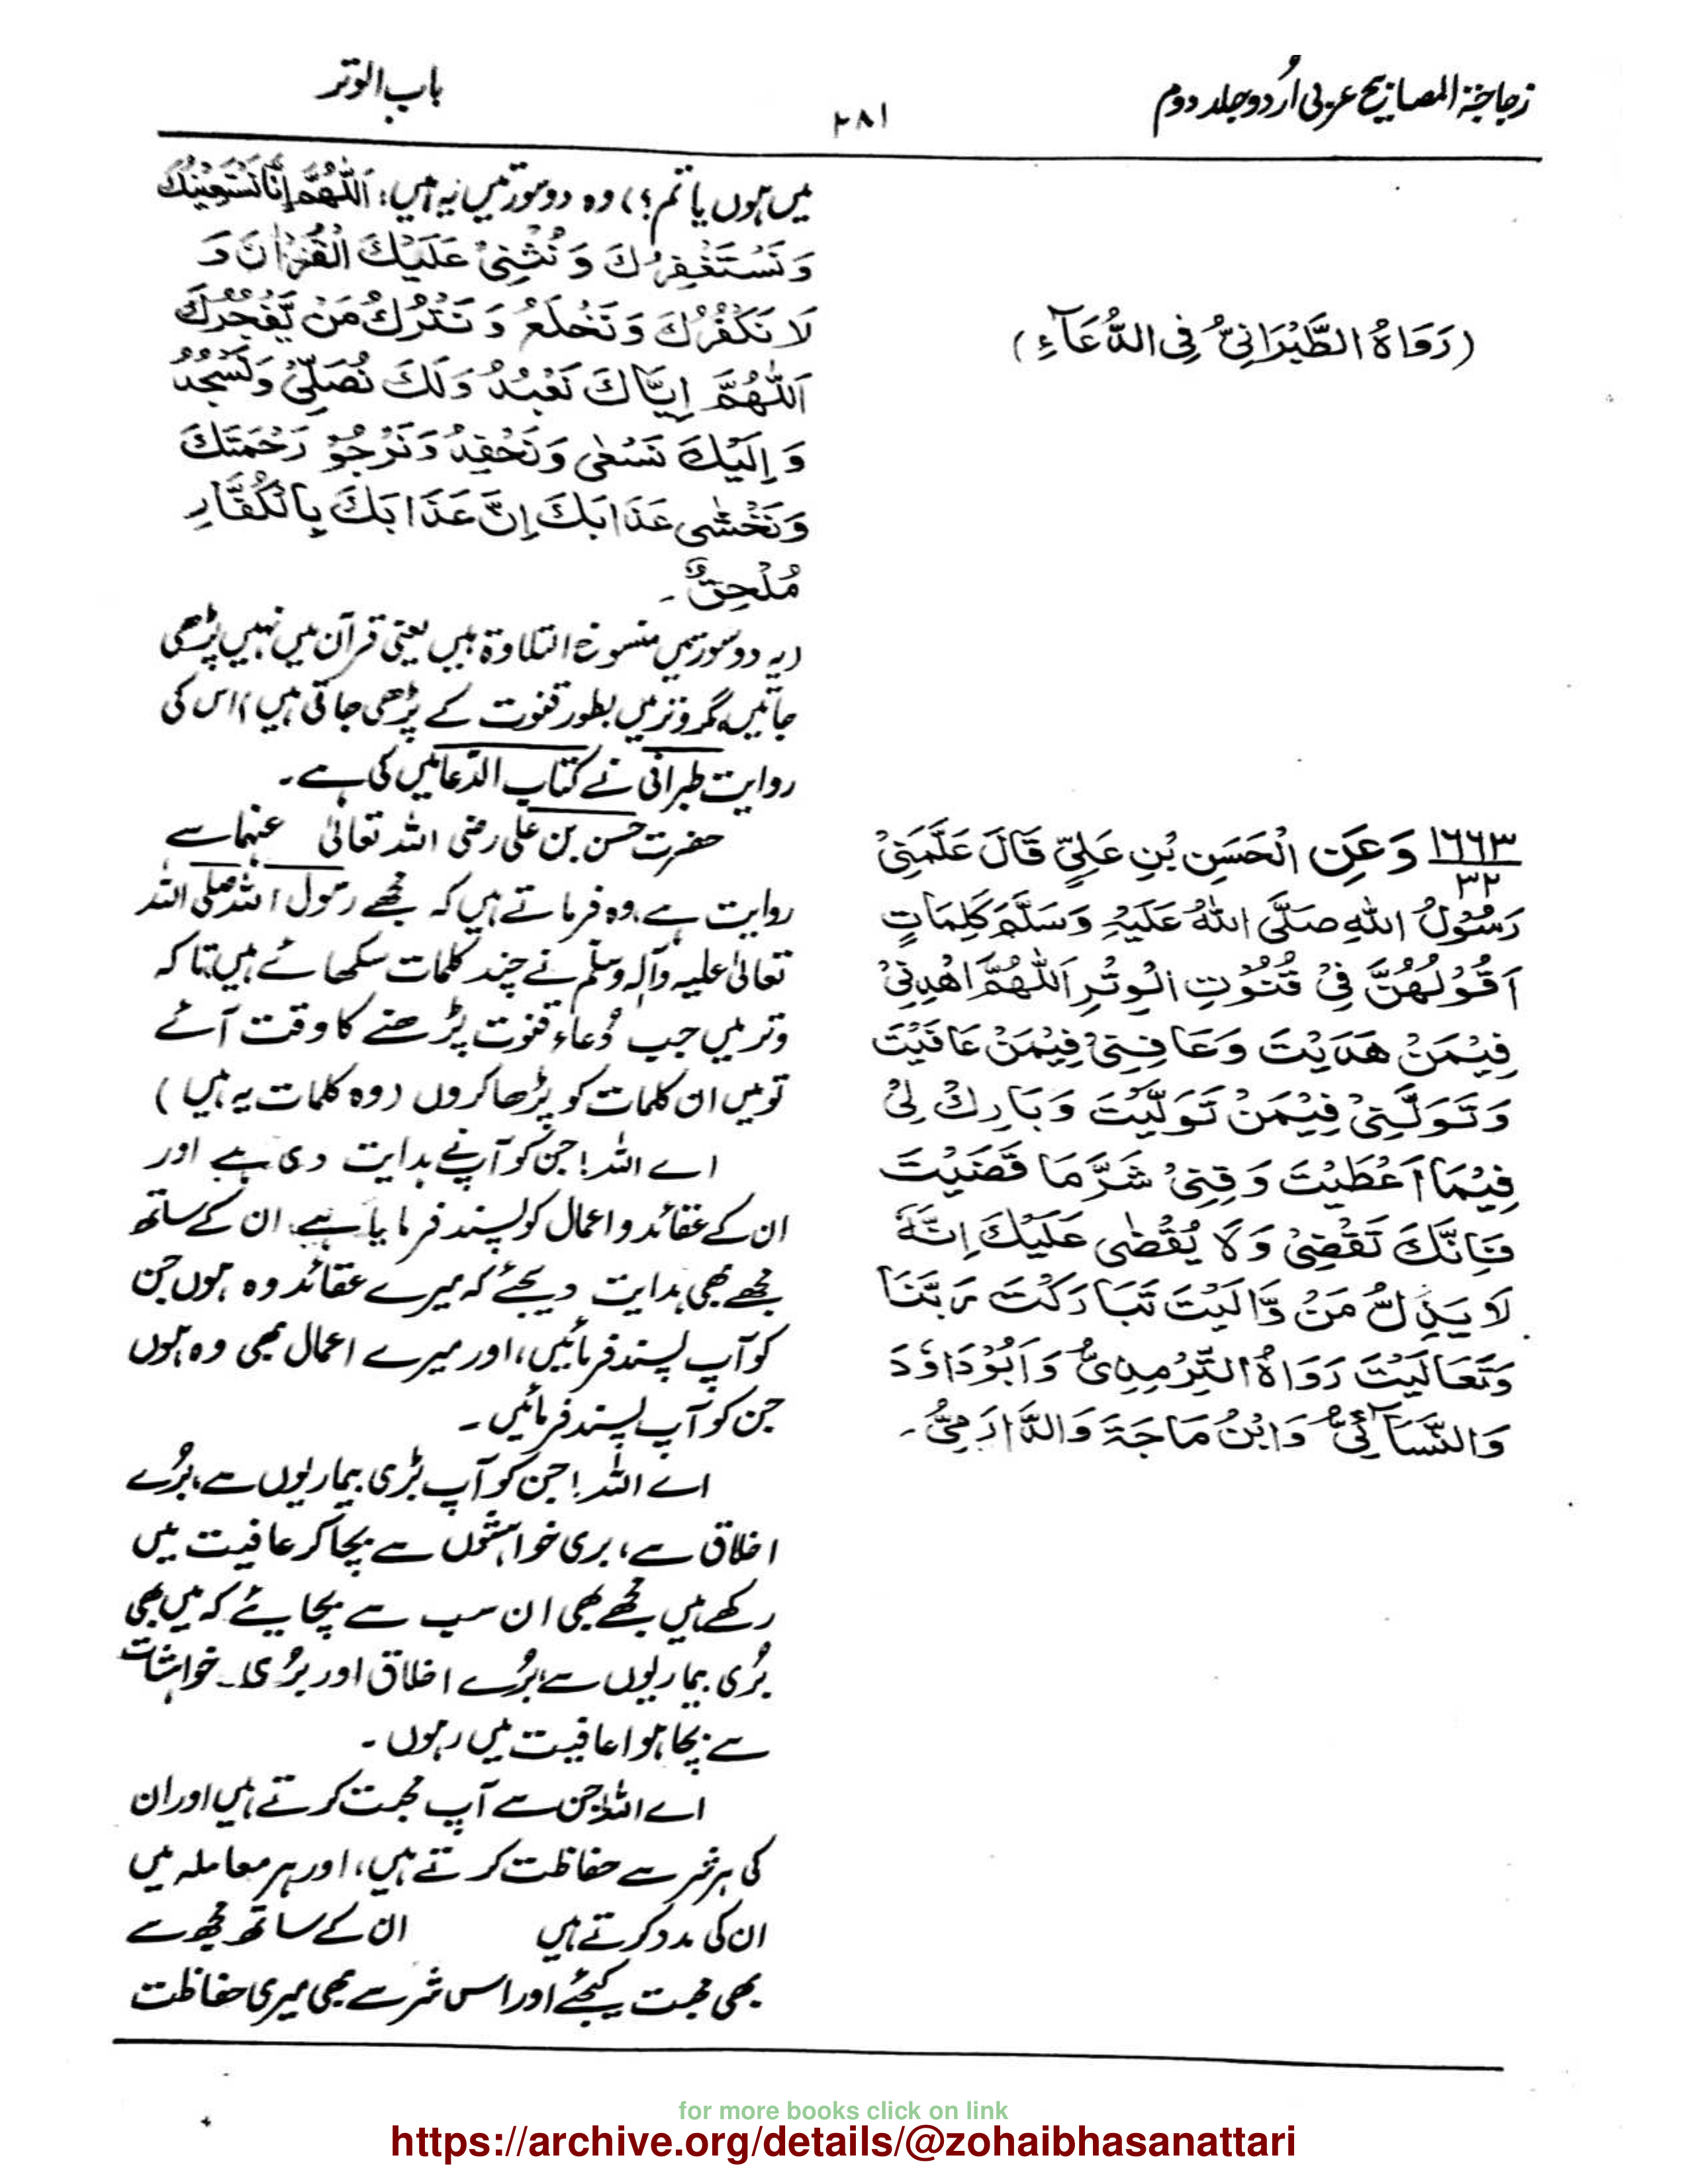 زجاجۃ المصابیح عربی اُردو جلد دوم
۲۸۱
باب الوتر
(رَوَاهُ الطَّبْرَانِیُّ فِی الدُّعَآءِ)
۱۶۶۳ وَعَنِ الْحَسَنِ بْنِ عَلِیٍّ قَالَ عَلَّمَنِیْ
۳۲
رَسُوْلُ اللّٰہِ صَلَّی اللّٰہُ عَلَیْہِ وَسَلَّمَ کَلِمَاتٍ
اَقُوْلُهُنَّ فِیْ قُنُوْتِ الْوِتْرِ اَللّٰهُمَّ اهْدِنِیْ
فِیْمَنْ هَدَیْتَ وَعَافِنِیْ فِیْمَنْ عَافَیْتَ
وَتَوَلَّنِیْ فِیْمَنْ تَوَلَّیْتَ وَبَارِكْ لِیْ
فِیْمَا اَعْطَیْتَ وَقِنِیْ شَرَّمَا قَضَیْتَ
فَاِنَّكَ تَقْضِیْ وَلَا یُقْضٰی عَلَیْكَ اِنَّهٗ
لَا یَذِلُّ مَنْ وَّالَیْتَ تَبَارَكْتَ رَبَّنَا
وَتَعَالَیْتَ رَوَاهُ التِّرْمِذِیُّ وَاَبُوْدَاوٗدَ
وَالنَّسَآئِیُّ وَابْنُ مَاجَۃَ وَالدَّارَمِیُّ۔
میں ہوں یا تم؟) وہ دو سورتیں یہ ہیں: اَللّٰهُمَّ اِنَّا نَسْتَعِیْنُكَ
وَنَسْتَغْفِرُكَ وَنُثْنِیْ عَلَیْكَ الْقُرْاٰنَ وَ
لَا نَكْفُرُكَ وَنَخْلَعُ وَنَتْرُكُ مَنْ یَّفْجُرُكَ
اَللّٰهُمَّ اِیَّاكَ نَعْبُدُ وَلَكَ نُصَلِّیْ وَنَسْجُدُ
وَاِلَیْكَ نَسْعٰی وَنَحْفِدُ وَنَرْجُوْ رَحْمَتَكَ
وَنَخْشٰی عَذَابَكَ اِنَّ عَذَابَكَ بِالْكُفَّارِ
مُلْحِقٌ۔
(یہ دو سورتیں منسوخ التلاوۃ ہیں یعنی قرآن میں نہیں پڑھی
جاتیں مگر وتر میں بطور قنوت کے پڑھی جاتی ہیں) اس کی
روایت طبرانی نے کتاب الدعا میں کی ہے۔
حضرت حسن بن علی رضی اللہ تعالیٰ عنہما سے
روایت ہے، وہ فرماتے ہیں کہ مجھے رسول اللہ صلی اللہ
تعالیٰ علیہ وآلہ وسلم نے چند کلمات سکھائے ہیں تاکہ
وتر میں جب دُعاء قنوت پڑھنے کا وقت آئے
تو میں ان کلمات کو پڑھا کروں (وہ کلمات یہ ہیں)
اے اللہ! جن کو آپ نے ہدایت دی ہے اور
ان کے عقائد و اعمال کو پسند فرمایا ہے، ان کے ساتھ
مجھے بھی ہدایت دیجئے کہ میرے عقائد وہ ہوں جن
کو آپ پسند فرمائیں، اور میرے اعمال بھی وہ ہوں
جن کو آپ پسند فرمائیں۔
اے اللہ! جن کو آپ بڑی بیماریوں سے، بُرے
اخلاق سے، بری خواہشوں سے بچا کر عافیت میں
رکھے ہیں مجھے بھی ان سب سے بچایئے کہ میں بھی
بُری بیماریوں سے بُرے اخلاق اور بُری۔ خواہشات
سے بچا ہوا عافیت میں رہوں۔
اے اللہ! جن سے آپ محبت کرتے ہیں اور ان
کی ہر شر سے حفاظت کرتے ہیں، اور ہر معاملہ میں
ان کی مدد کرتے ہیں ان کے ساتھ مجھ سے
بھی محبت کیجئے اور اس شر سے بھی میری حفاظت
for more books click on link
https://archive.org/details/@zohaibhasanattari